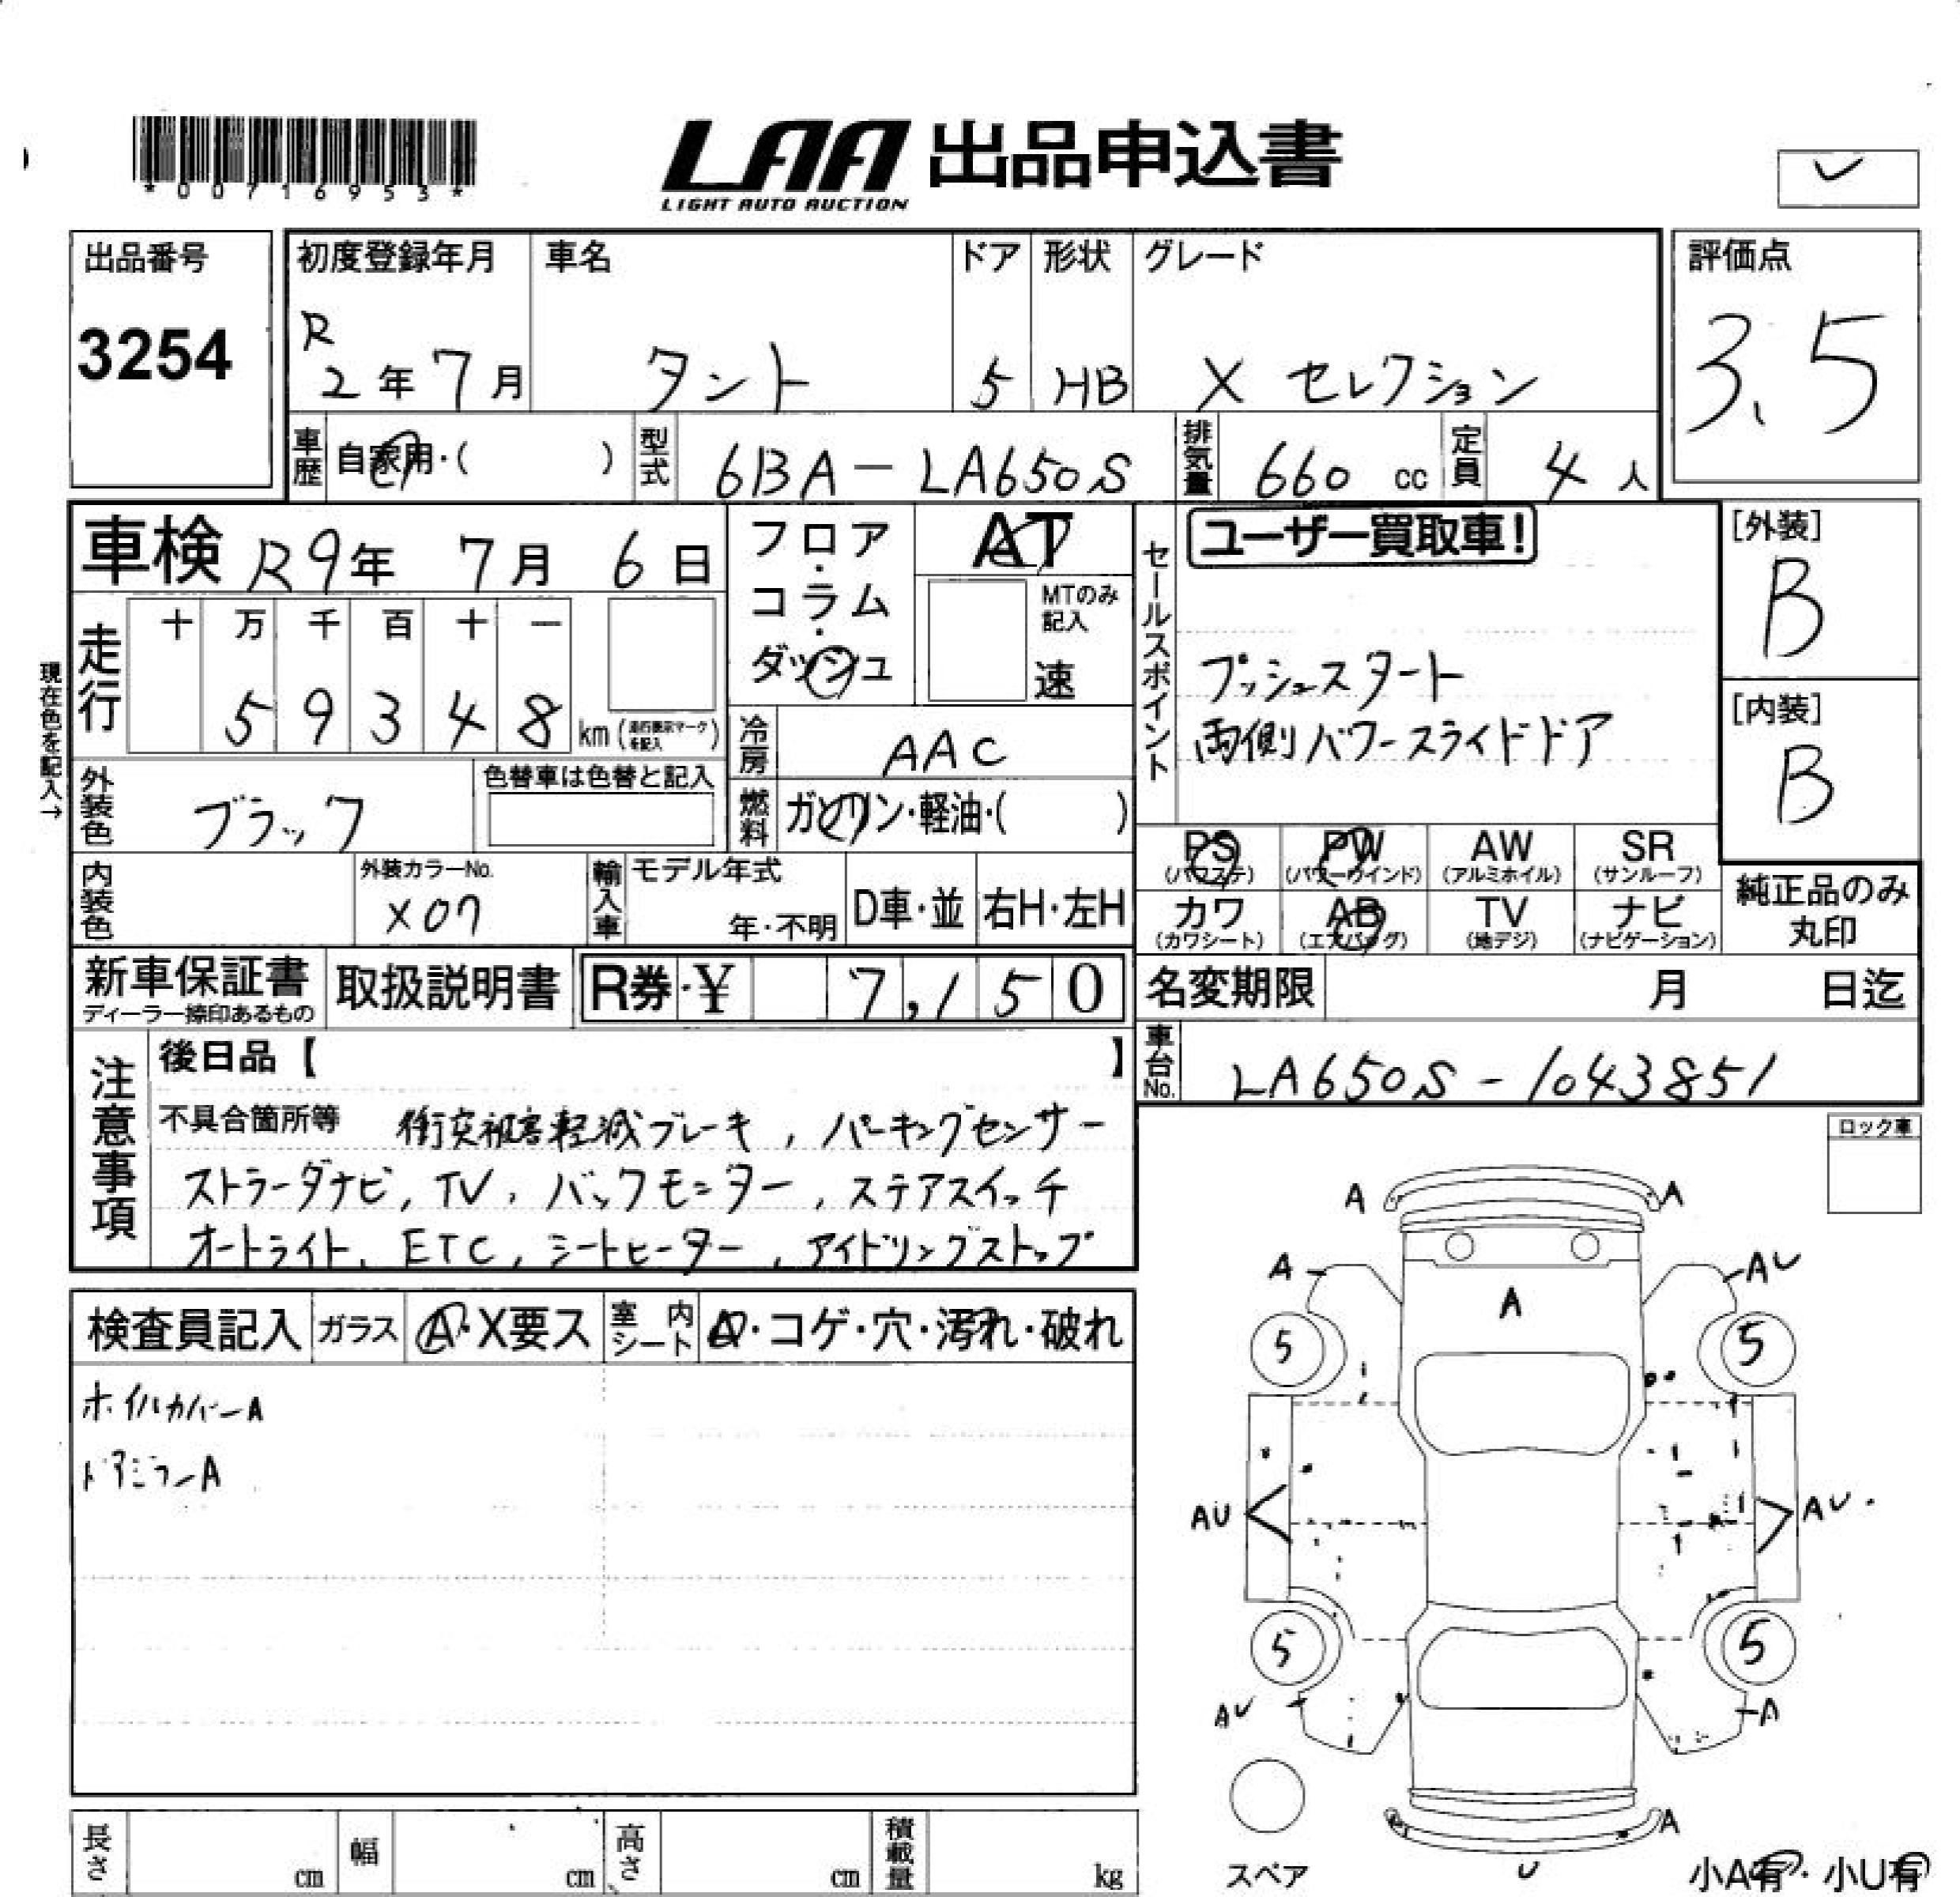 *00716953*
LAA 出品申込書
LIGHT AUTO AUCTION
出品番号
3254
初度登録年月
R
2年7月
車名
タント
ドア
5
形状
HB
グレード
X セレクション
評価点
3.5
車歴
自家用・( )
型式
6BA-LA650S
排気量
660 cc
定員
4人
車検 R9年 7月 6日
フロア・コラム・ダッシュ
AT
MTのみ記入
速
セールスポイント
ユーザー買取車!
プッシュスタート
両側パワースライドドア
[外装]
B
[内装]
B
現在色を記入→
走行
十 万 千 百 十 一
5 9 3 4 8 km
冷房
AAC
外装色
ブラック
色替車は色替と記入
燃料
ガソリン・軽油・( )
PS
(パワステ)
PW
(パワーウインド)
AW
(アルミホイル)
SR
(サンルーフ)
カワ
(カワシート)
AB
(エアバッグ)
TV
(地デジ)
ナビ
(ナビゲーション)
純正品のみ
丸印
内装色
外装カラーNo.
X07
輸入車
モデル年式
年・不明
D車・並
右H・左H
新車保証書
ディーラー捺印あるもの
取扱説明書
R券・¥ 7,150
名変期限 月 日迄
車台No.
LA650S-1043851
注意事項
後日品【 】
不具合箇所等 衝突被害軽減ブレーキ, パーキングセンサー
ストラーダナビ, TV, バックモニター, ステアスイッチ
オートライト, ETC, シートヒーター, アイドリングストップ
ロック車
検査員記入
ガラス
A・X要ス
室内シート
A・コゲ・穴・汚れ・破れ
ホイルカバーA
ドアミラーA
A A
A AU
A
5 5
AU AU
5 5
AU A
A
U
スペア
小A有・小U有
長さ cm
幅 cm
高さ cm
積載量 kg